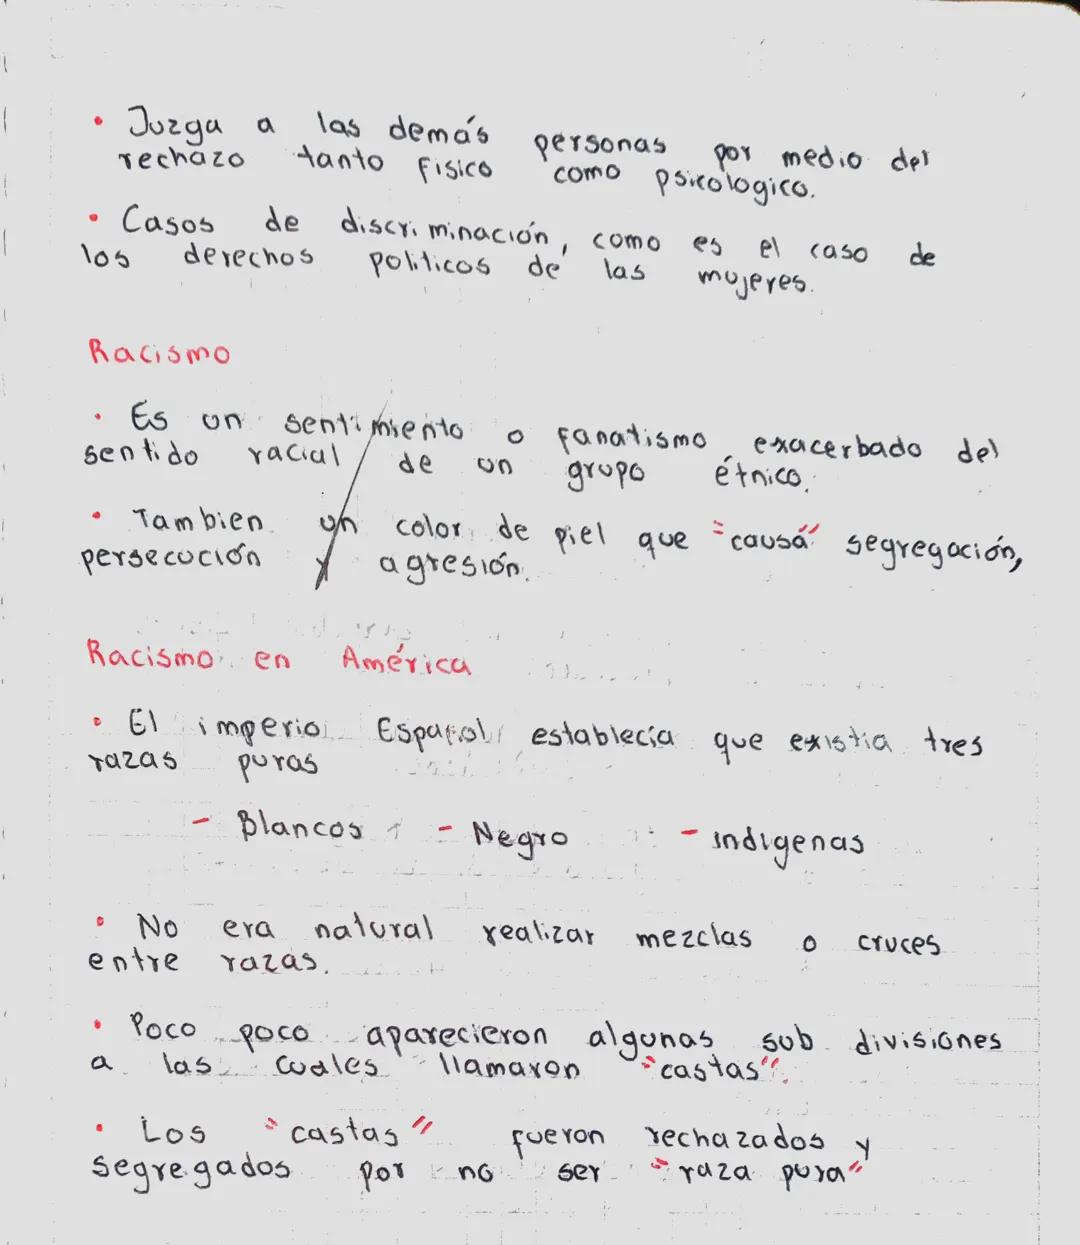 • Juzga a las demás personas por medio del
rechazo tanto fisico como psicologico.
• Casos de discriminación, como es el caso de
los derechos politicos de las mujeres.
Racismo
• Es un sentimiento o fanatismo exacerbado del
sentido racial de un grupo étnico.
• Tambien un color de piel que "causa" segregación,
persecución y agresión.
Racismo en América
• El imperio Español establecia que existia tres
razas puras
- Blancos - Negro - indigenas
• No era natural realizar mezclas o cruces
entre razas.
• Poco poco aparecieron algunas sub divisiones
a las cuales llamaron "castas".
• Los "castas" fueron rechazados y
segregados por no ser "raza pura"